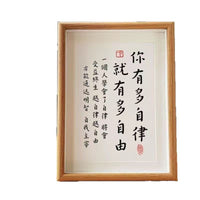 你有多自律
就有多自由
一個人學會了自律 將會
受益終生 越自律 越自由
方能通达明智 自我主宰